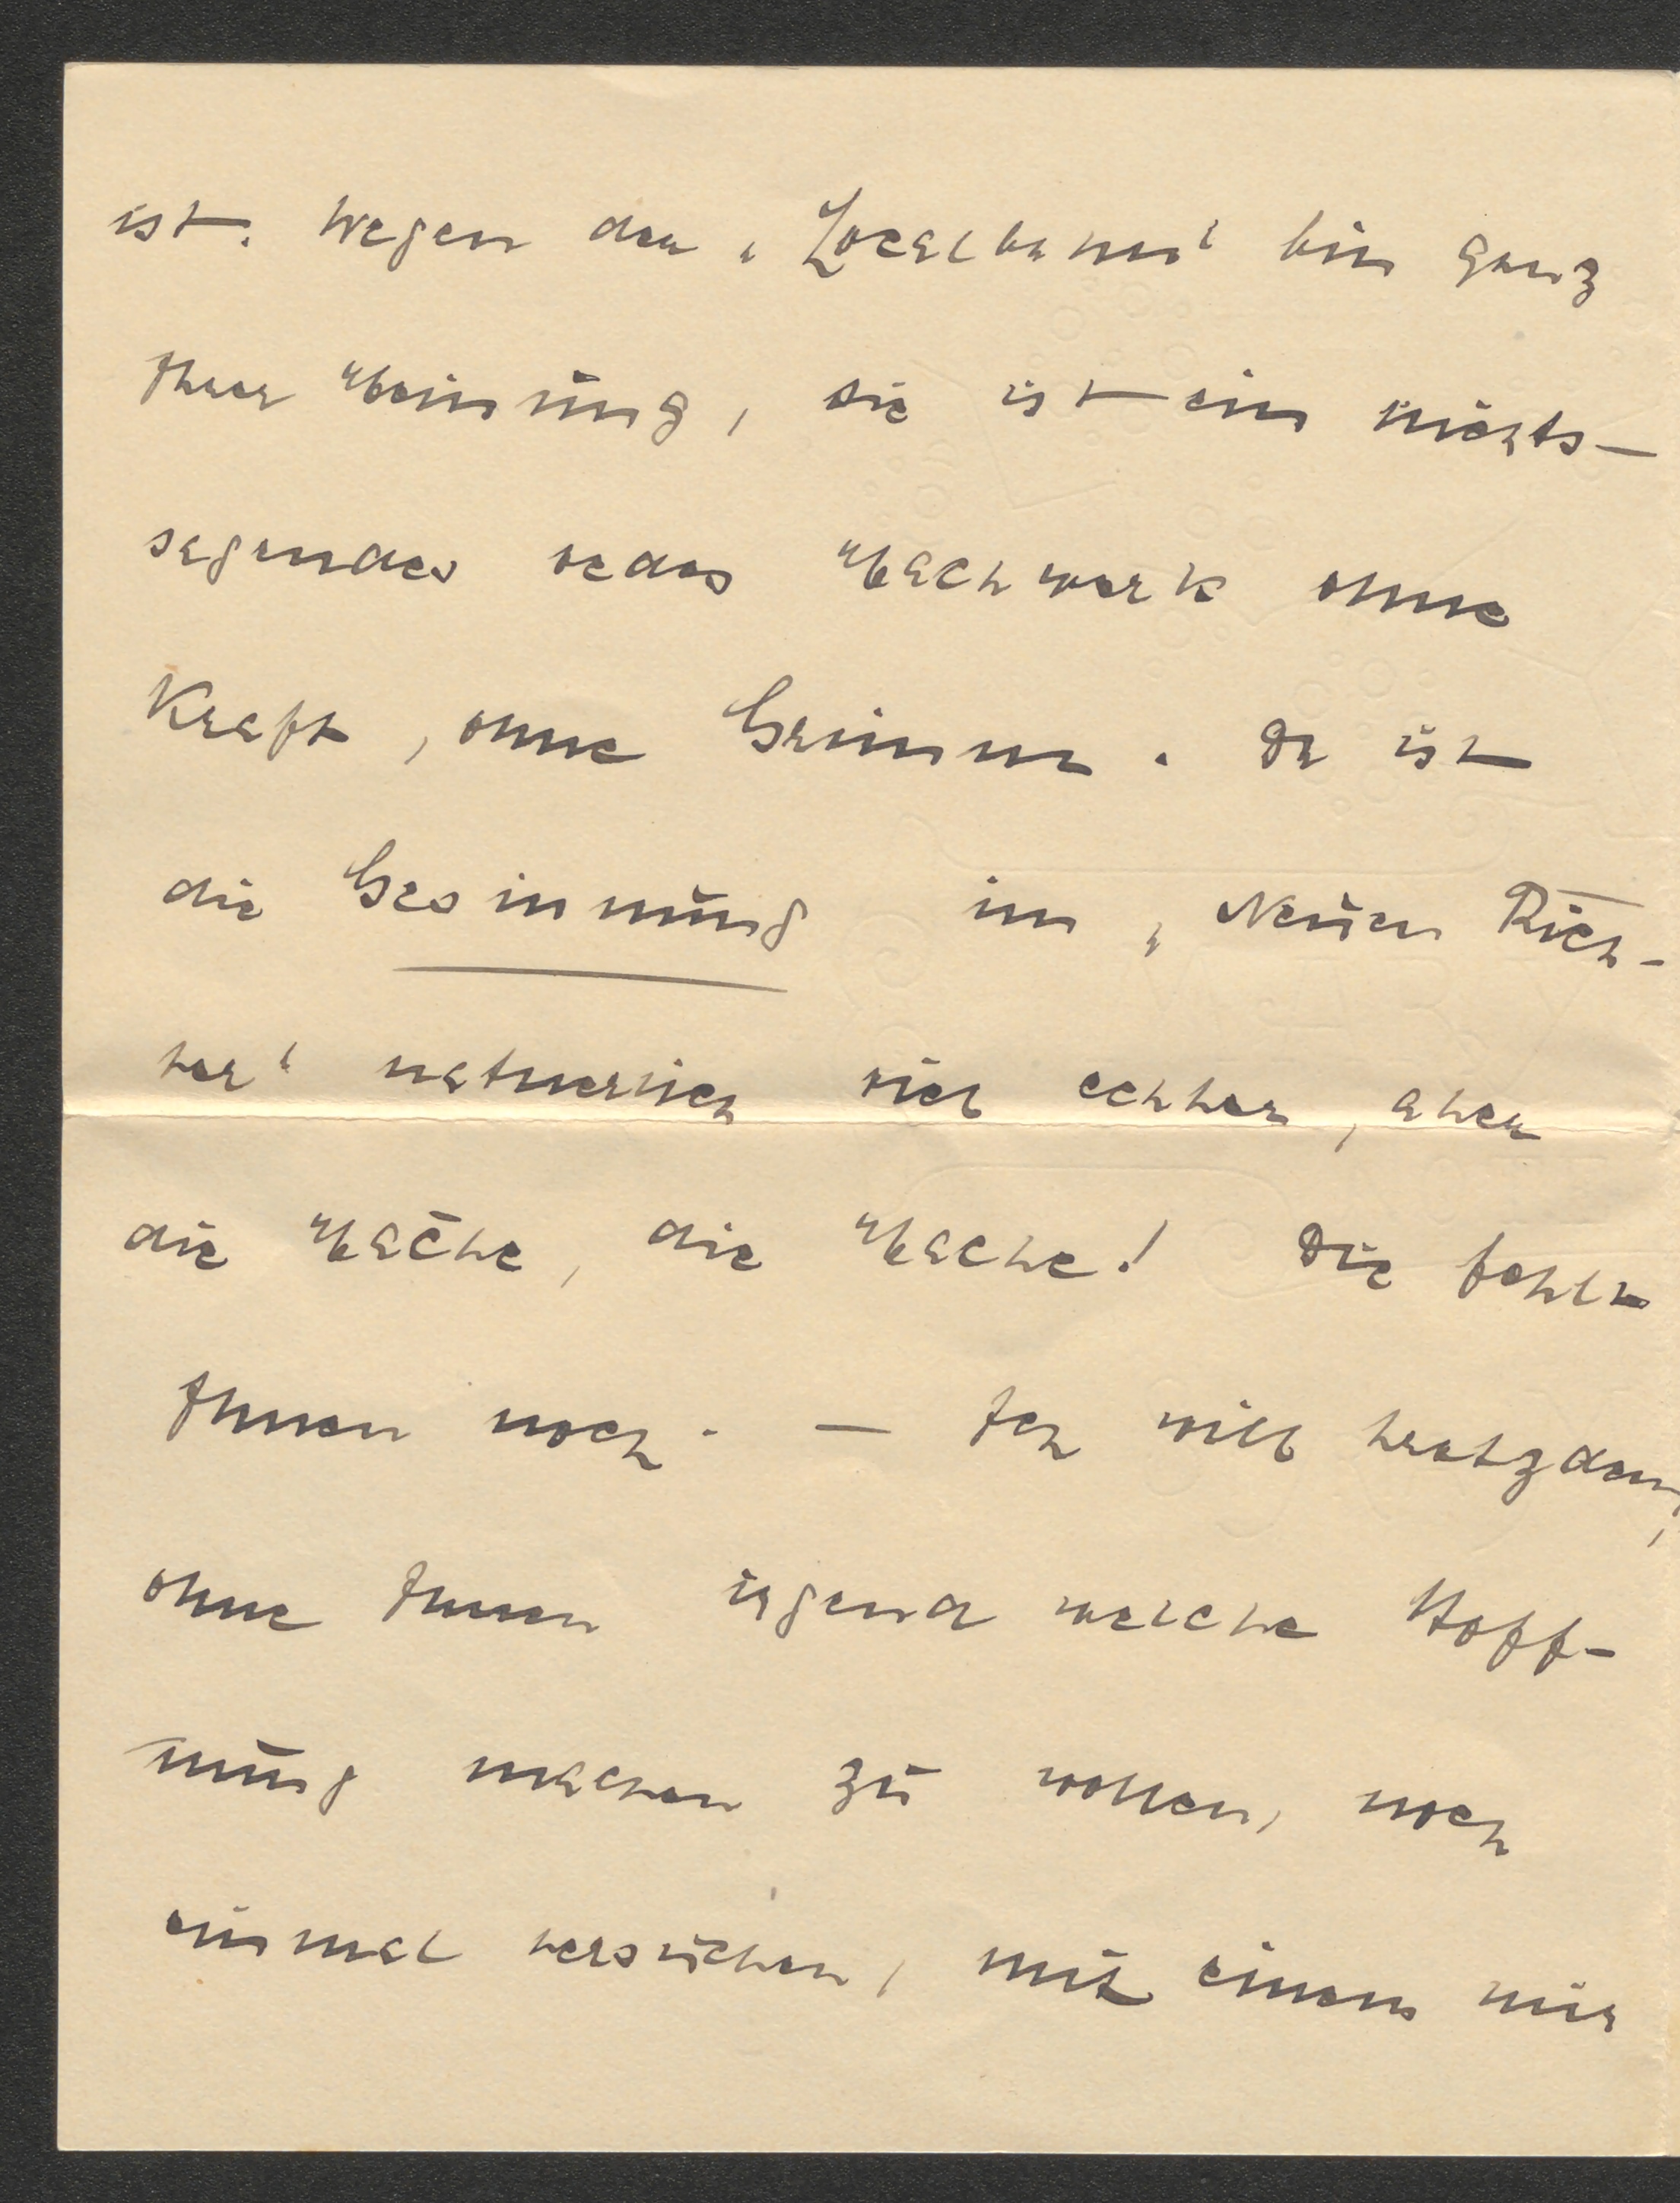 ist. Wegen der „Localbahn“ bin ganz
Ihrer Meinung, sie ist ein nichts-
sagendes oedes Machwerk ohne
Kraft, ohne Grimm. Da ist
die Gesinnung im „Neuen Rich-
ter“ natuerlich viel echter, aber
die Mache, die Mache! Die fehlt
Ihnen noch. — Ich will trotzdem,
ohne Ihnen irgend welche Hoff-
nung machen zu wollen, noch
einmal versuchen, mit einem mir